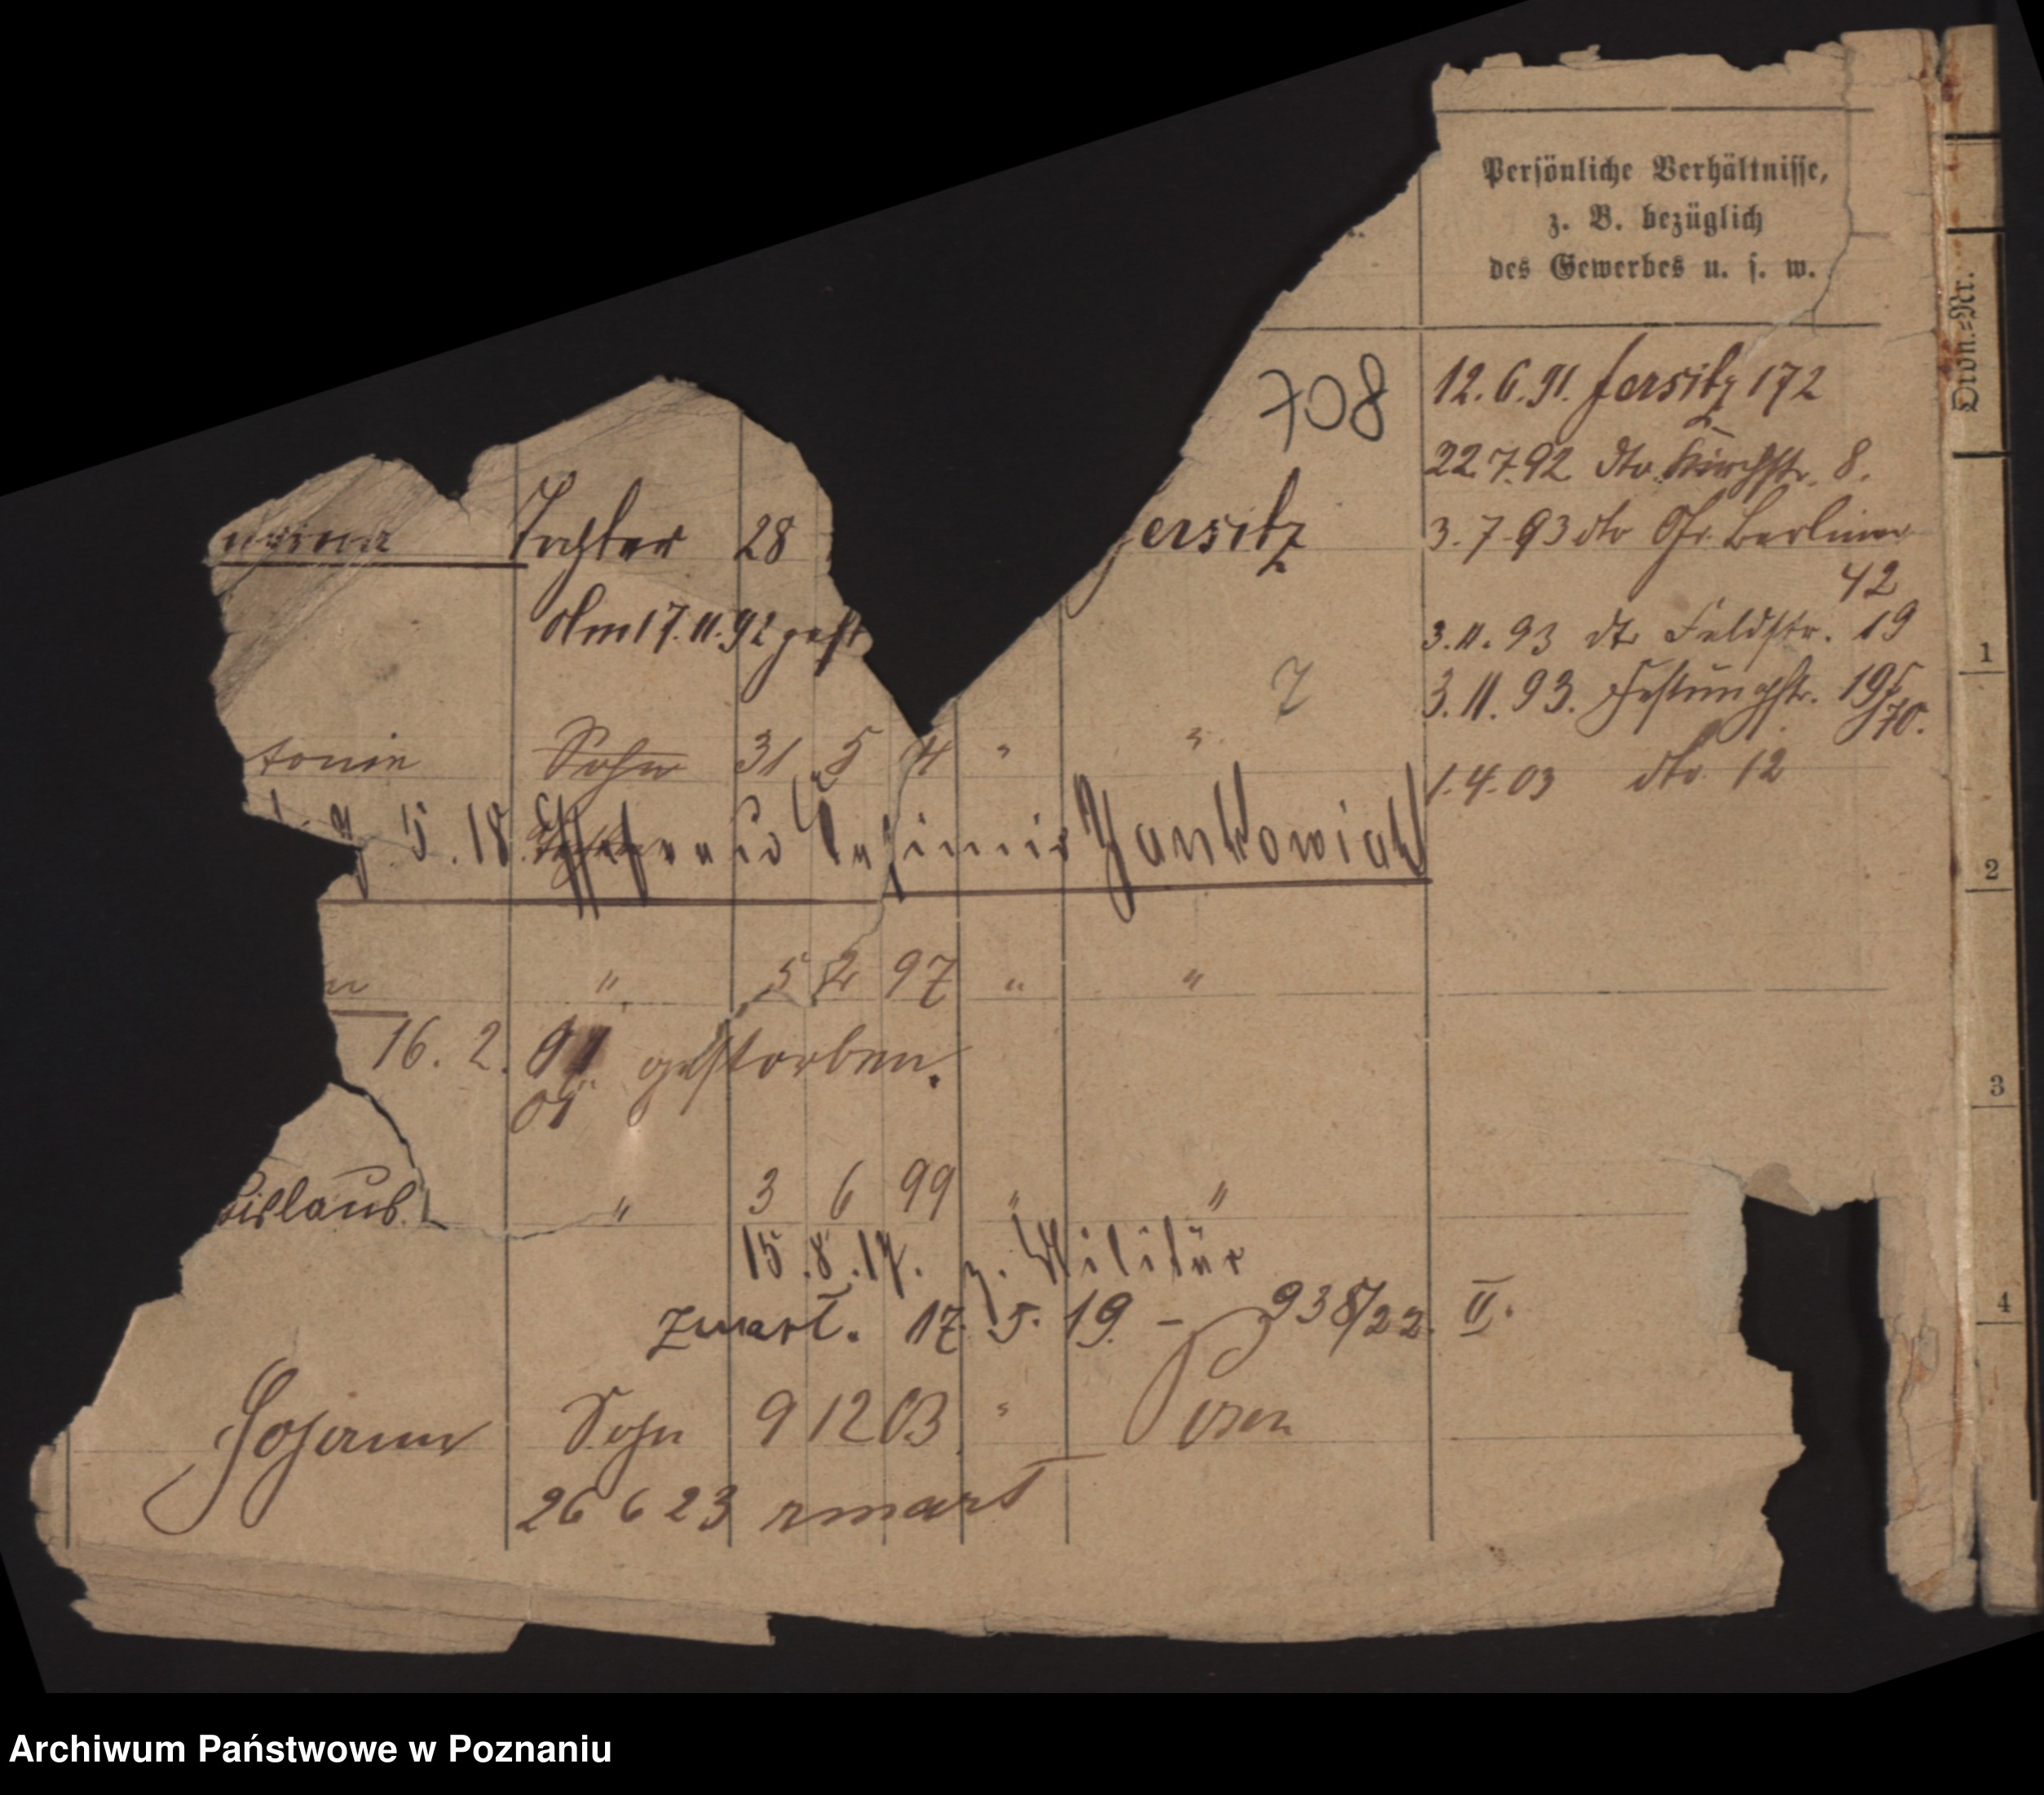 Persönliche Verhältnisse,
z. B. bezüglich
des Gewerbes u. s. w.
Div.-Nr.
708
12.6.91. Jersitz 172
22.7.92 dto. Kirchstr. 8.
Tochter 28 Jersitz
3.7.93 dto Gr. Berliner
42
Am 17.11.92 gest
3.11.93 dto Feldstr. 19
7
3.11.93. Festungstr. 19
70.
tonie Sohn 31 5 " "
1.4.03 dto 12
5.18. Kasimir Jankowiak
" 5 2 97 " "
16. 2. gestorben.
01
islaus. " 3 6 99 " "
15.8.17. z. Militär
zmarł. 17.5.19 - 938/22 II.
Johann Sohn 9 12 03 " Posen
26 6 23 zmarł
1
2
3
4
Archiwum Państwowe w Poznaniu